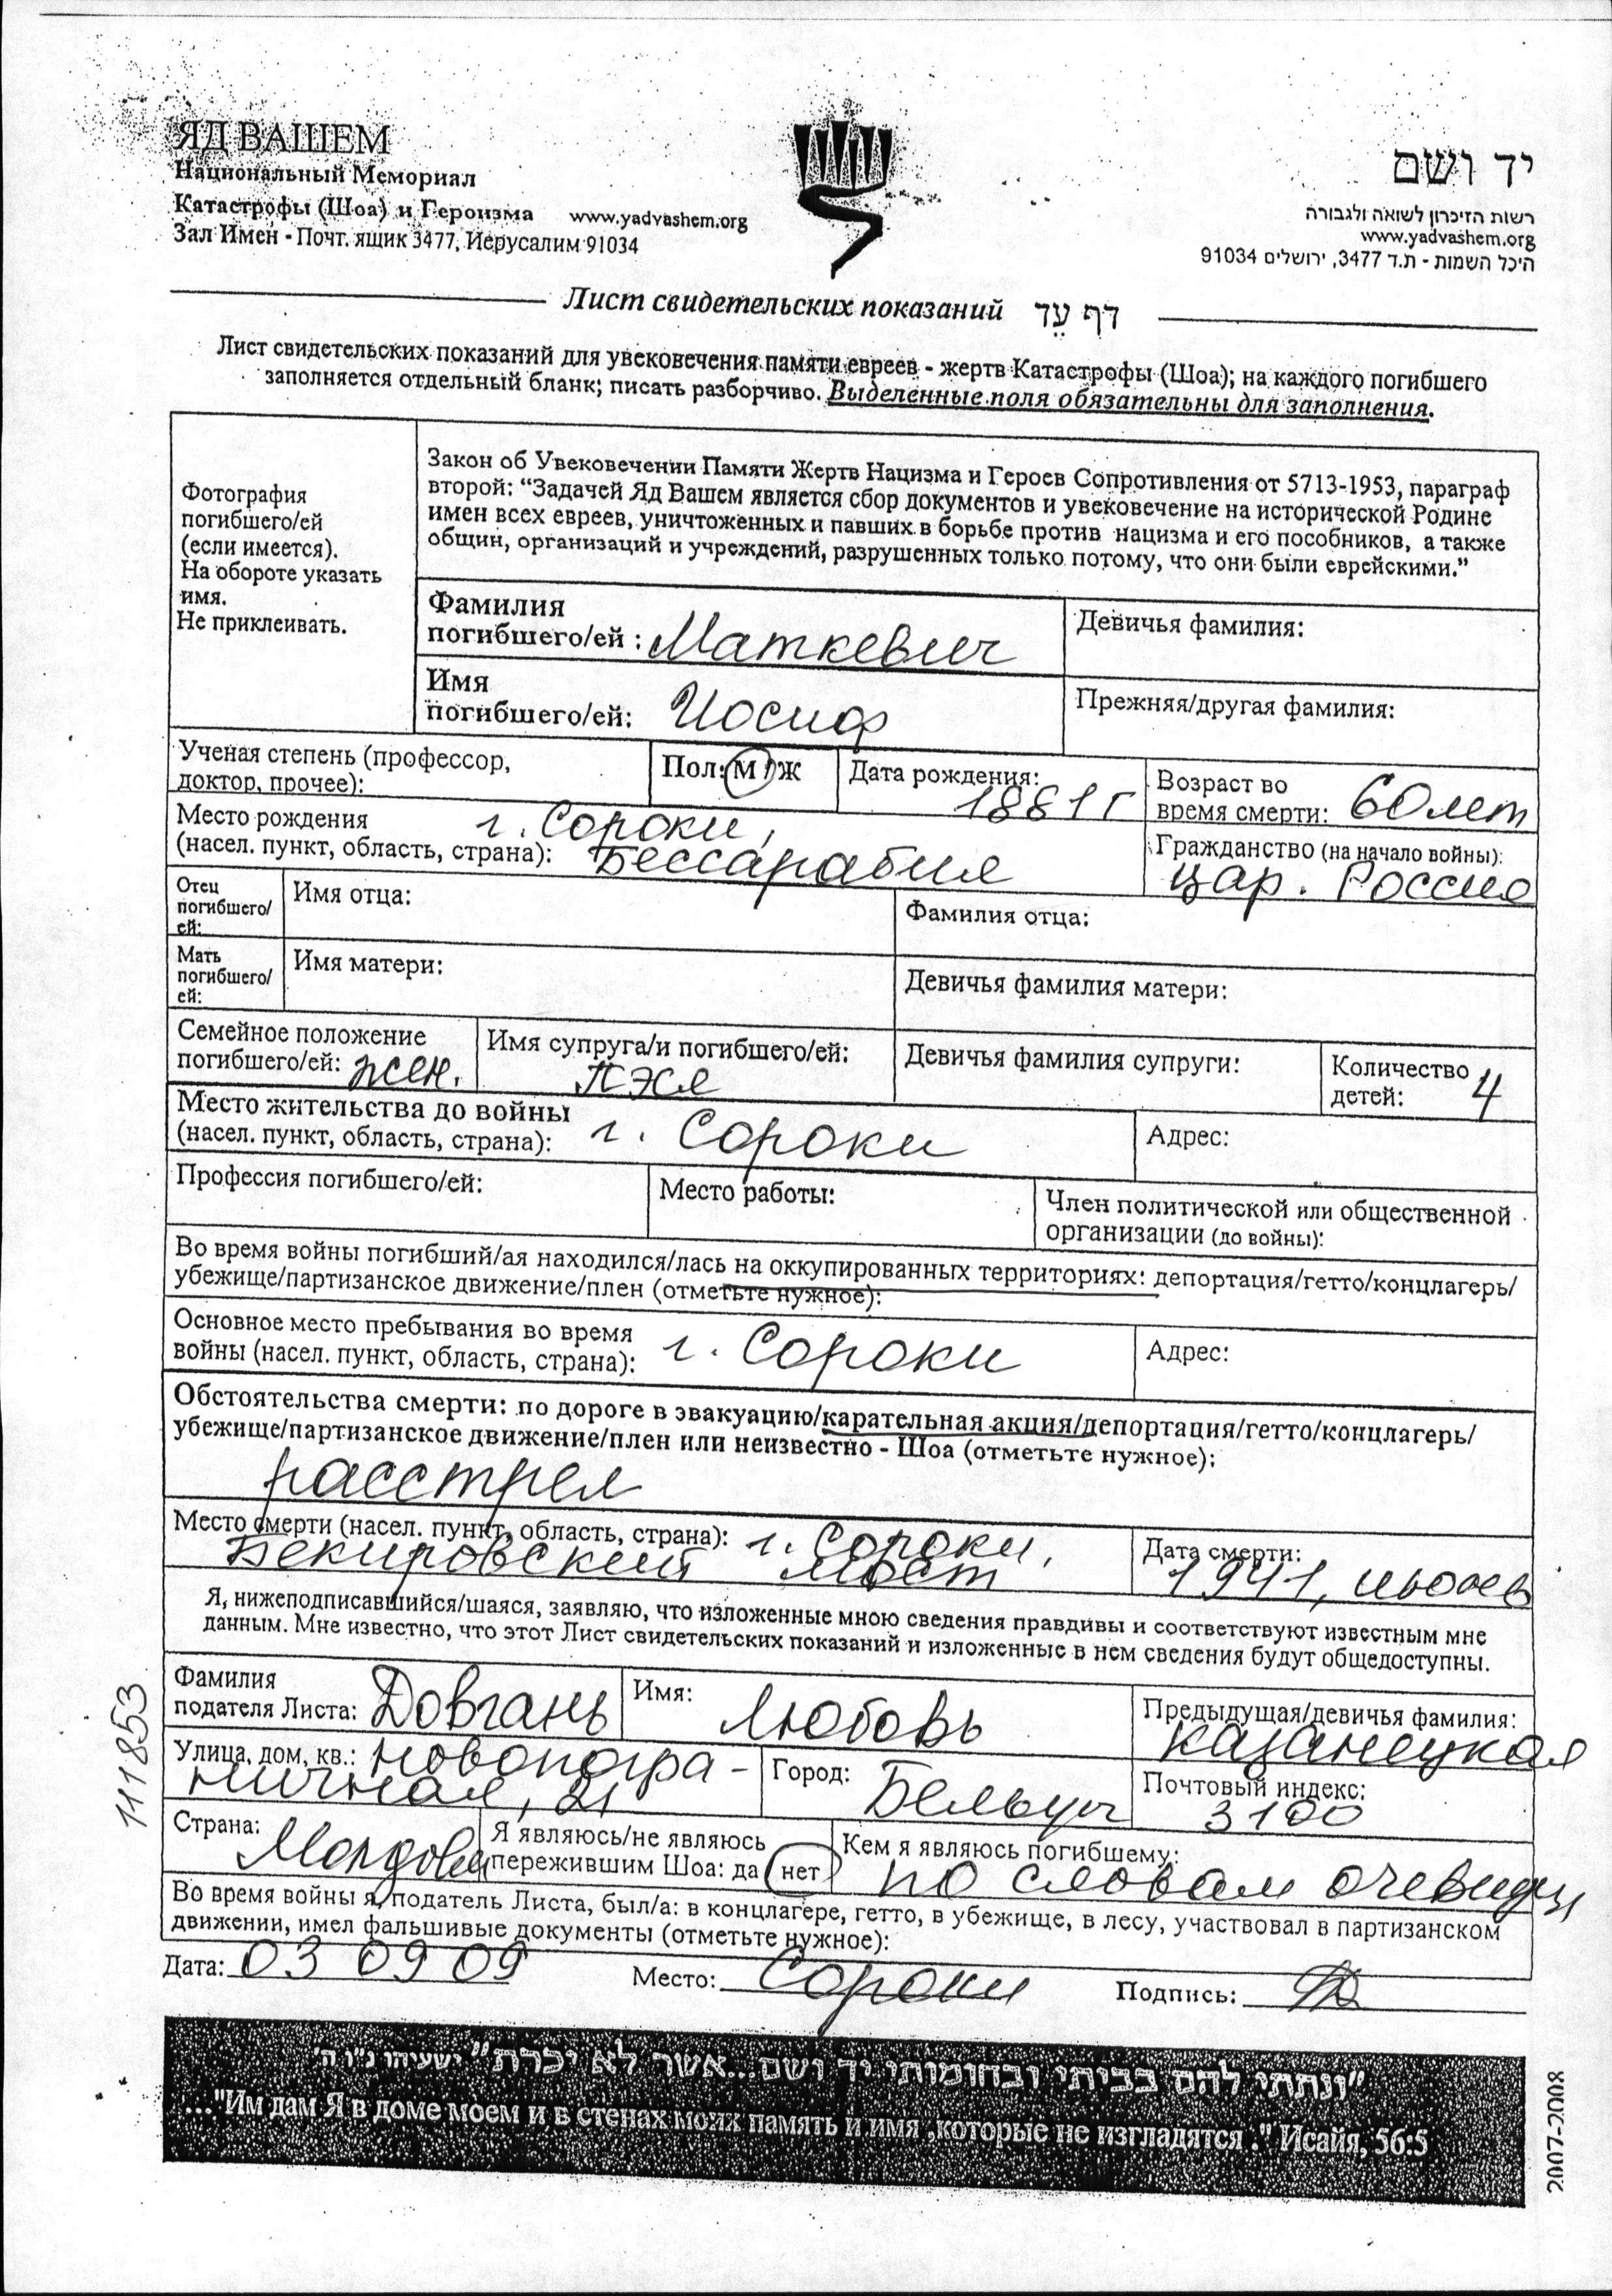 ЯД ВАШЕМ
Национальный Мемориал
Катастрофы (Шоа) и Героизма www.yadvashem.org
Зал Имен - Почт. ящик 3477, Иерусалим 91034
יד ושם
רשות הזיכרון לשואה ולגבורה
www.yadvashem.org
היכל השמות - ת.ד 3477, ירושלים 91034
Лист свидетельских показаний דף עֵד
Лист свидетельских показаний для увековечения памяти евреев - жертв Катастрофы (Шоа); на каждого погибшего
заполняется отдельный бланк; писать разборчиво. Выделенные поля обязательны для заполнения.
Фотография
погибшего/ей
(если имеется).
На обороте указать
имя.
Не приклеивать.
Закон об Увековечении Памяти Жертв Нацизма и Героев Сопротивления от 5713-1953, параграф
второй: “Задачей Яд Вашем является сбор документов и увековечение на исторической Родине
имен всех евреев, уничтоженных и павших в борьбе против нацизма и его пособников, а также
общин, организаций и учреждений, разрушенных только потому, что они были еврейскими.”
Фамилия
погибшего/ей : Маткевич
Девичья фамилия:
Имя
погибшего/ей: Иосиф
Прежняя/другая фамилия:
Ученая степень (профессор,
доктор, прочее):
Пол: М / Ж
Дата рождения:
1881 г
Возраст во
время смерти: 60 лет
Место рождения г. Сороки,
(насел. пункт, область, страна): Бессарабия
Гражданство (на начало войны):
цар. Россия
Отец
погибшего/
ей:
Имя отца:
Фамилия отца:
Мать
погибшего/
ей:
Имя матери:
Девичья фамилия матери:
Семейное положение
погибшего/ей: жен.
Имя супруга/и погибшего/ей:
Пэся
Девичья фамилия супруги:
Количество
детей: 4
Место жительства до войны
(насел. пункт, область, страна): г. Сороки
Адрес:
Профессия погибшего/ей:
Место работы:
Член политической или общественной
организации (до войны):
Во время войны погибший/ая находился/лась на оккупированных территориях: депортация/гетто/концлагерь/
убежище/партизанское движение/плен (отметьте нужное):
Основное место пребывания во время
войны (насел. пункт, область, страна): г. Сороки
Адрес:
Обстоятельства смерти: по дороге в эвакуацию/карательная акция/депортация/гетто/концлагерь/
убежище/партизанское движение/плен или неизвестно - Шоа (отметьте нужное):
расстрел
Место смерти (насел. пункт, область, страна): г. Сороки,
Бекировский мост
Дата смерти:
1941, июль
Я, нижеподписавшийся/шаяся, заявляю, что изложенные мною сведения правдивы и соответствуют известным мне
данным. Мне известно, что этот Лист свидетельских показаний и изложенные в нем сведения будут общедоступны.
Фамилия
подателя Листа: Довгань
Имя: Любовь
Предыдущая/девичья фамилия:
Казанецкая
Улица, дом, кв.: Новопогра-
ничная, 21
Город: Бельцы
Почтовый индекс:
3100
Страна:
Молдова
Я являюсь/не являюсь
пережившим Шоа: да нет
Кем я являюсь погибшему:
по словам очевидц
Во время войны я, податель Листа, был/а: в концлагере, гетто, в убежище, в лесу, участвовал в партизанском
движении, имел фальшивые документы (отметьте нужное):
Дата: 03 09 09 Место: Сороки Подпись:
"ונתתי להם בביתי ובחומותי יד ושם...אשר לא יכרת" ישעיהו נ"ו ה'
..."Им дам Я в доме моем и в стенах моих память и имя ,которые не изгладятся ." Исайя, 56:5
111853
2007-2008